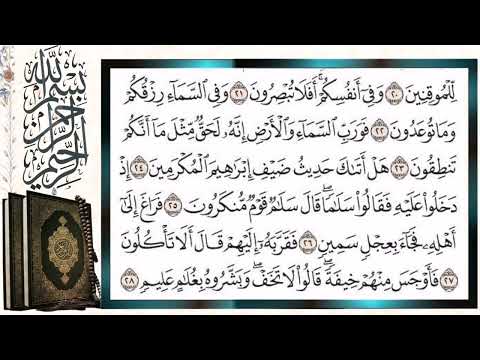 بسم الله الرحمن الرحيم
لِّلْمُوقِنِينَ ٢٠ وَفِىٓ أَنفُسِكُمْ ۚ أَفَلَا تُبْصِرُونَ ٢١ وَفِى ٱلسَّمَآءِ رِزْقُكُمْ
وَمَا تُوعَدُونَ ٢٢ فَوَرَبِّ ٱلسَّمَآءِ وَٱلْأَرْضِ إِنَّهُۥ لَحَقٌّ مِّثْلَ مَآ أَنَّكُمْ
تَنطِقُونَ ٢٣ هَلْ أَتَىٰكَ حَدِيثُ ضَيْفِ إِبْرَٰهِيمَ ٱلْمُكْرَمِينَ ٢٤ إِذْ
دَخَلُوا۟ عَلَيْهِ فَقَالُوا۟ سَلَٰمًا ۖ قَالَ سَلَٰمٌ قَوْمٌ مُّنكَرُونَ ٢٥ فَرَاغَ إِلَىٰٓ
أَهْلِهِۦ فَجَآءَ بِعِجْلٍ سَمِينٍ ٢٦ فَقَرَّبَهُۥٓ إِلَيْهِمْ قَالَ أَلَا تَأْكُلُونَ
٢٧ فَأَوْجَسَ مِنْهُمْ خِيفَةً ۖ قَالُوا۟ لَا تَخَفْ ۖ وَبَشَّرُوهُ بِغُلَٰمٍ عَلِيمٍ ٢٨